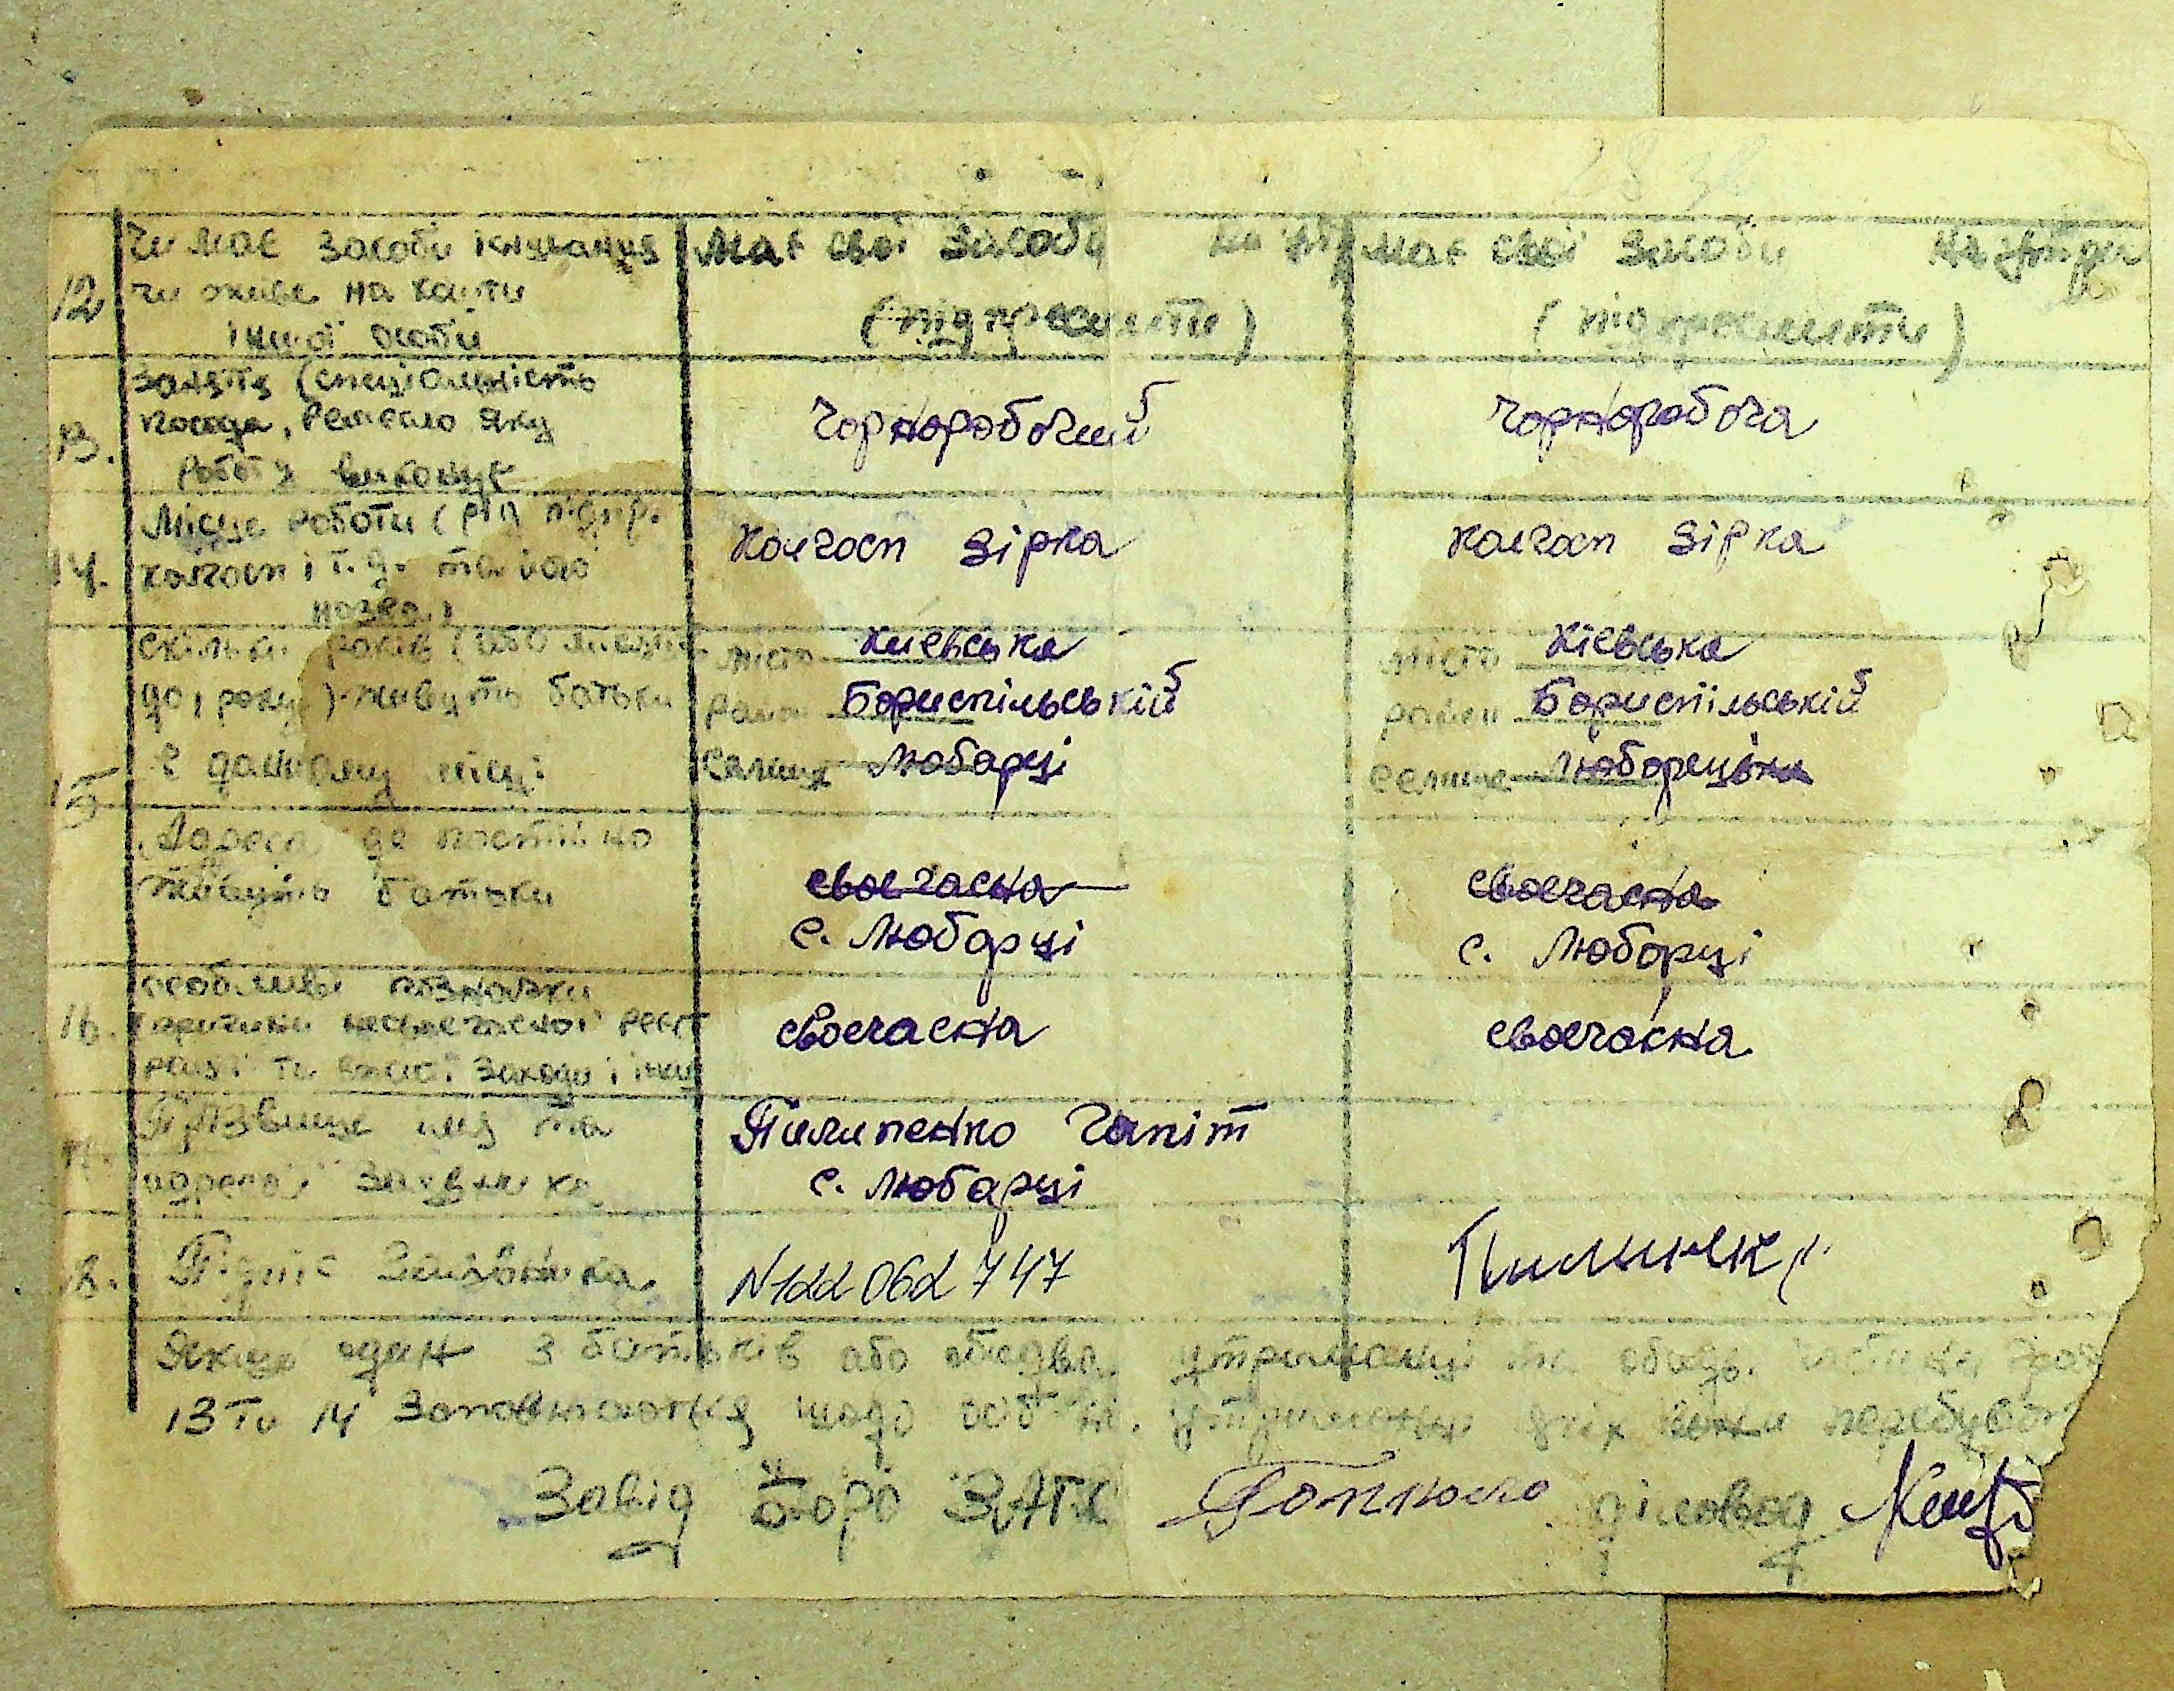 12 Чи має засоби існування
чи живе на кошти
іншої особи
Має свої засоби
(підкреслити)
Має свої засоби
(підкреслити)
13. Заняття (спеціальність
посада, ремесло яку
роботу виконує
Чорноробочий
чорноробоча
14. Місце роботи (
колгосп і т.д. та його
назва)
Колгосп Зірка
колгосп Зірка
15 Скільки років (або
до 1 року) живуть батьки
в даному місці
місто Киевська
район Бориспільській
селище Любарці
місто Кіевська
район Бориспільській
селище Люборецька
Адреса де постійно
живуть батьки
своечасна
с. Любарці
своечасна
с. Любарці
16. особливі позначки
причини несвоєчасної
та вжиті заходи і
своечасна
своечасна
17. Прізвище ім'я та
адреса заявника
Пилипенко Гапіт
с. Любарці
18. Підпис Заявника
N122 062 747
Якщо один з батьків або обидва утриманці
13 та 14 заповнюються щодо осіб на утриманні яких вони перебувають
Завід бюро ЗАГС діловод